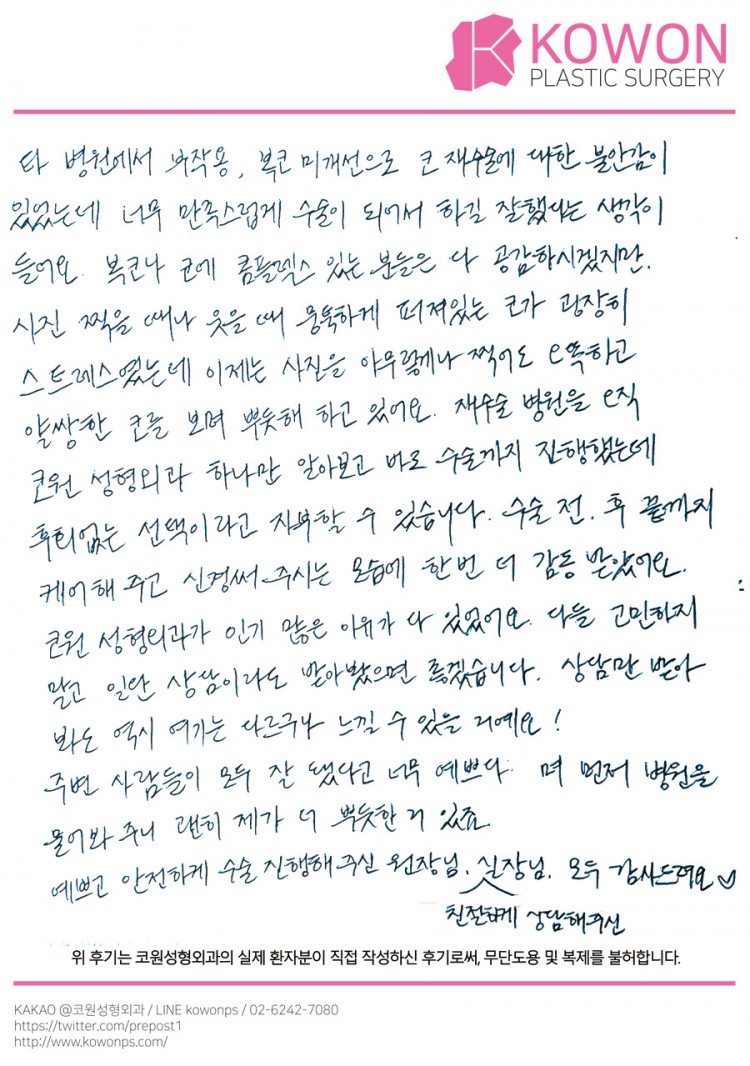 KOWON
PLASTIC SURGERY
타 병원에서 부작용, 복코 미개선으로 코 재수술에 대한 불안감이
있었는데 너무 만족스럽게 수술이 되어서 하길 잘했다는 생각이
들어요. 복코나 코에 콤플렉스 있는 분들은 다 공감하시겠지만.
사진 찍을 때나 웃을 때 뭉뚝하게 퍼져있는 코가 굉장히
스트레스였는데 이제는 사진을 아무렇게나 찍어도 오똑하고
얄쌍한 코를 보며 뿌듯해 하고 있어요. 재수술 병원을 오직
코원 성형외과 하나만 알아보고 바로 수술까지 진행했는데
후회없는 선택이라고 자부할 수 있습니다. 수술 전. 후 끝까지
케어해 주고 신경써 주시는 모습에 한번 더 감동 받았어요.
코원 성형외과가 인기 많은 이유가 다 있었어요. 다들 고민하지
말고 일단 상담이라도 받아봤으면 좋겠습니다. 상담만 받아
봐도 역시 여기는 다르구나 느낄 수 있을 거예요!
주변 사람들이 모두 잘 됐다고 너무 예쁘다. 며 먼저 병원을
물어봐 주니 괜히 제가 더 뿌듯한 거 있죠
예쁘고 안전하게 수술 진행해주신 원장님. 실장님. 모두 감사드려요♡
친절하게 상담해주신
위 후기는 코원성형외과의 실제 환자분이 직접 작성하신 후기로써, 무단도용 및 복제를 불허합니다.
KAKAO @코원성형외과 / LINE kowonps / 02-6242-7080
https://twitter.com/prepost1
http://www.kowonps.com/